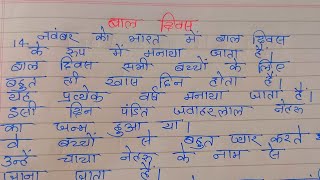 बाल दिवस
14 नवंबर को भारत में बाल दिवस
के रूप में मनाया जाता है।
बाल दिवस सभी बच्चों के लिए
बहुत ही खास दिन होता है।
यह प्रत्येक वर्ष मनाया जाता है।
इसी दिन पंडित जवाहरलाल नेहरू
का जन्म हुआ था।
वे बच्चों से बहुत प्यार करते थे
उन्हें चाचा नेहरू के नाम से
जाना जाता है।